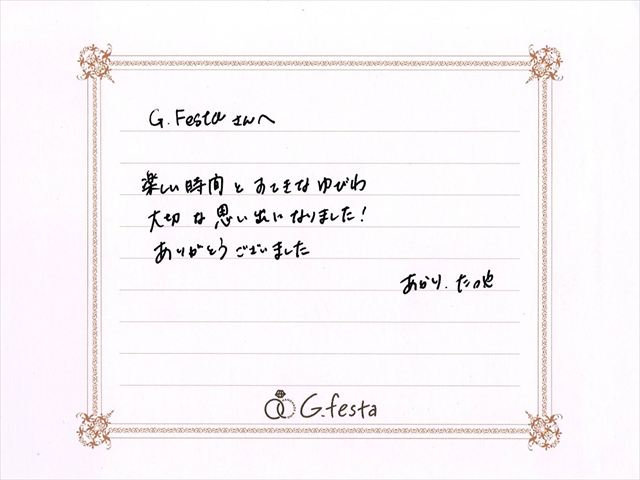 G.Festaさんへ
楽しい時間とすてきなゆびわ
大切な思い出になりました!
ありがとうございました
あかり.たつ也
G.festa